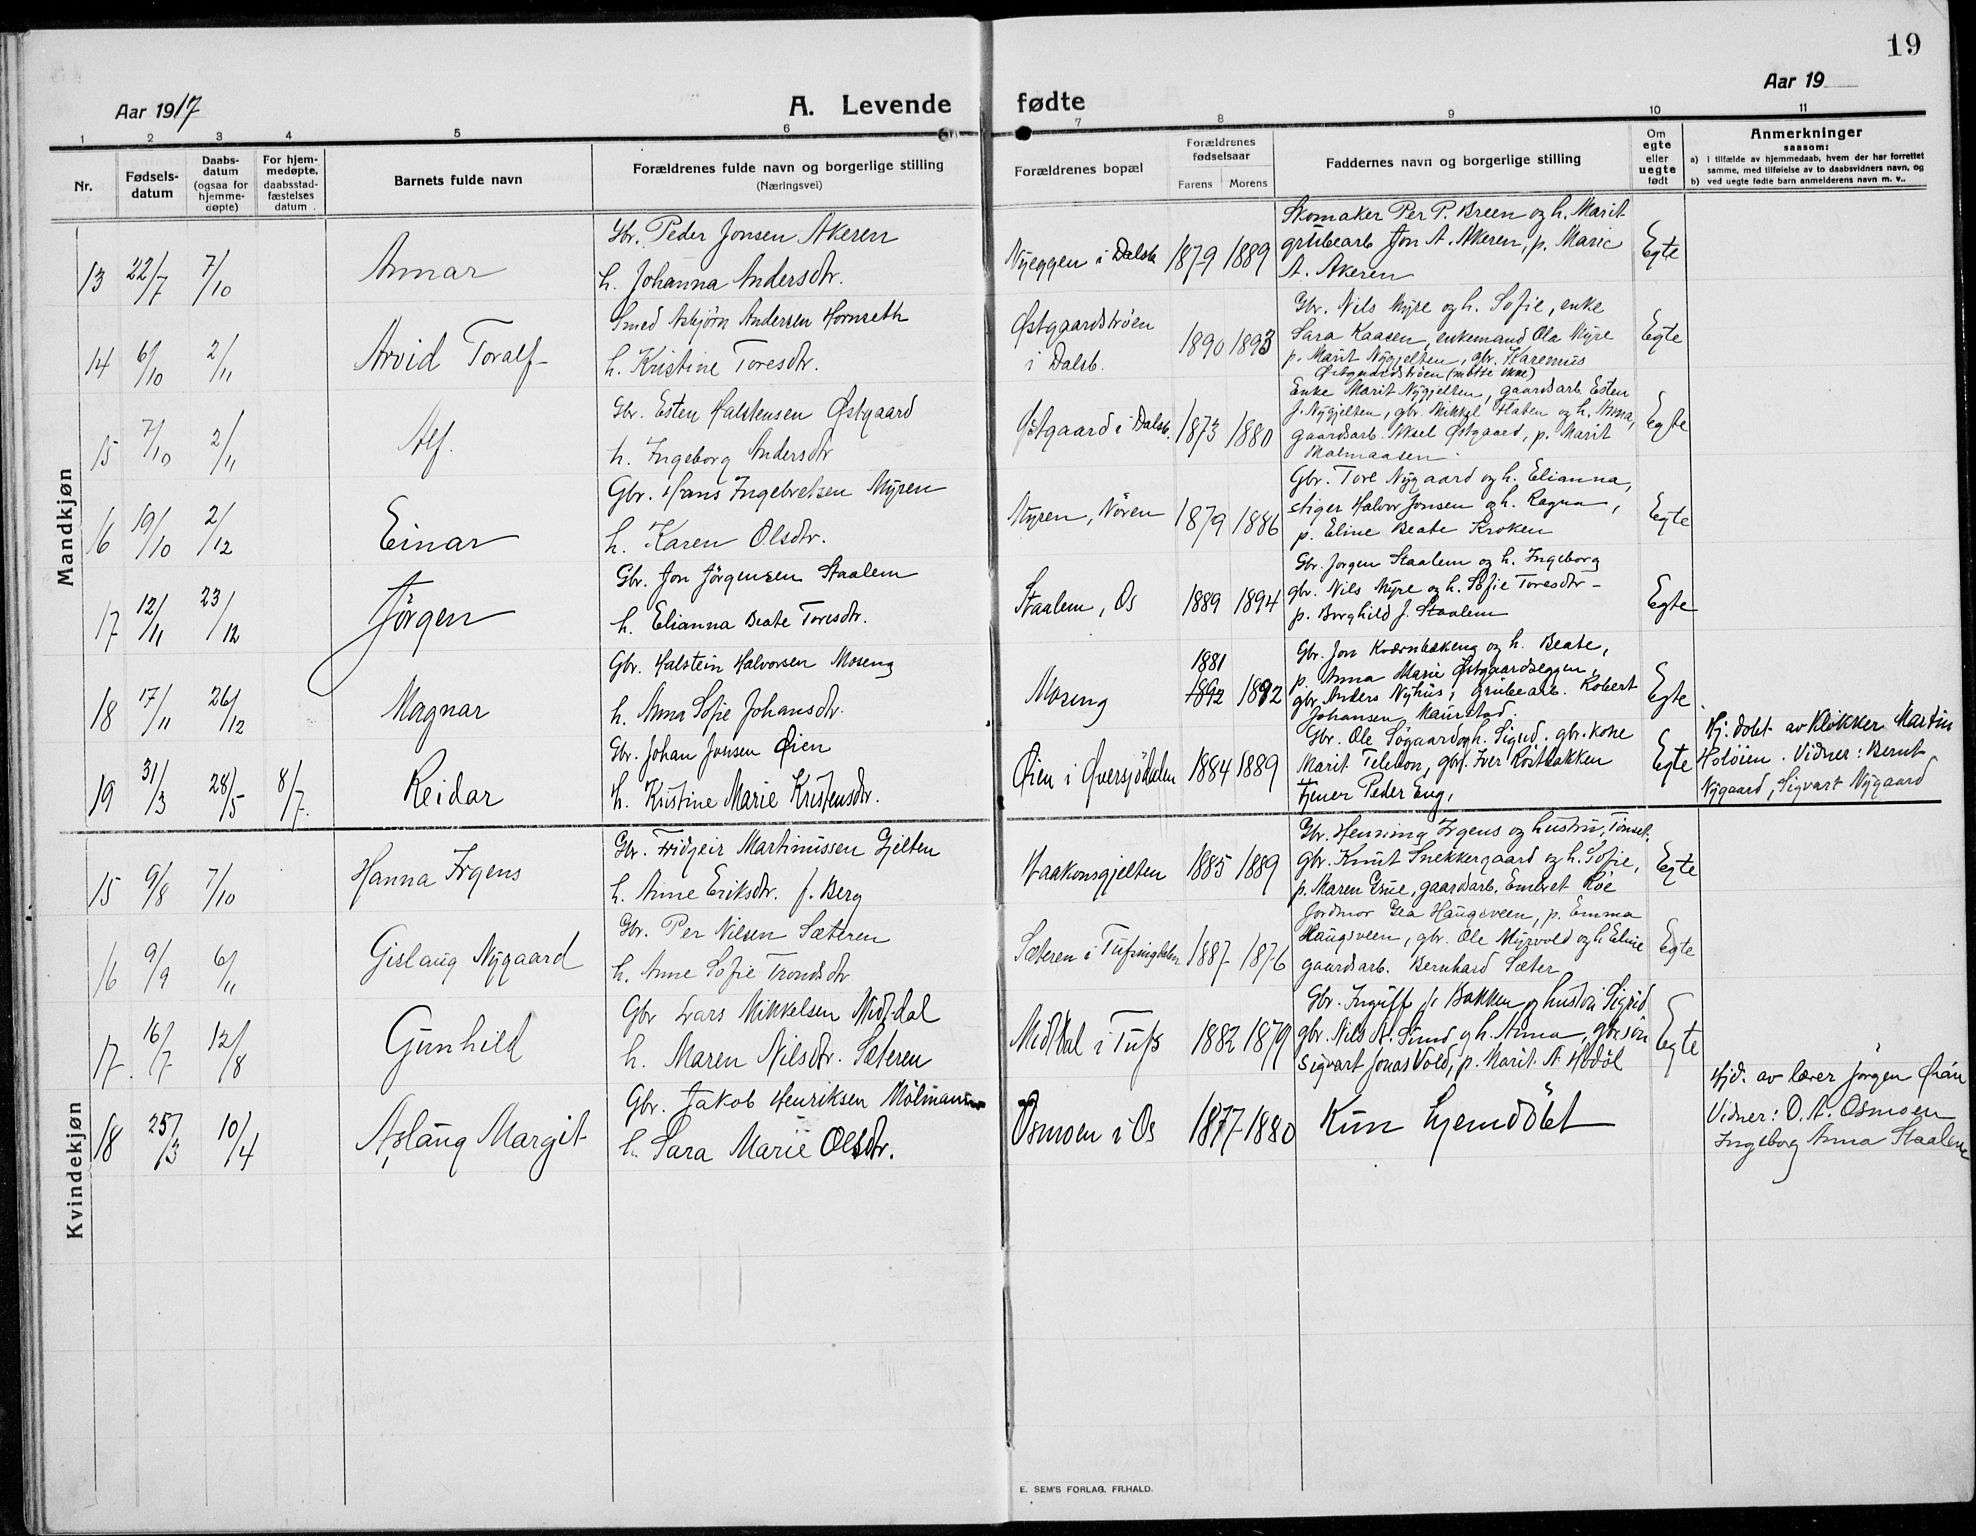 19
Aar 1917
A. Levende fødte
Aar 19
1 2 3 4 5 6 7 8 9 10 11
Nr.
Fødsels-
datum
Daabs-
datum
(ogsaa for
hjemme-
døpte)
For hjem-
medøpte,
daabsstad-
fæstelses
datum.
Barnets fulde navn
Forældrenes fulde navn og borgerlige stilling
(Næringsvei)
Forældrenes bopæl
Forældrenes
fødselsaar
Farens Morens
Faddernes navn og borgerlige stilling
Om
egte
eller
uegte
født
Anmerkninger
saasom:
a) I tilfælde av hjemmedaab, hvem der har forrettet
samme, med tilføielse av to daabsvidners navn, og
b) ved uegte fødte barn anmelderens navn m. v..
Mandkjøn
13 22/7 7/10 Annar
Gbr. Peder Jonsen Akeren
h. Johanna Andersdtr.
Nyeggen i Dalsb. 1879 1889
Skomaker Per P. Breen og h. Marit
grubearb Jon A. Akeren, p. Marie
A. Akeren
Egte
14 6/10 2/11 Arvid Toralf
Smed Asbjörn Andersen Hornseth
h. Kristine Toresdtr.
Østgaardströen
i Dalsb.
1890 1893
Gbr. Nils Myre og h. Sofie, enke
Sara Kaasen, enkemand Ola Myre
p. Marit Nygjelten, gbr. Karenus
Østgaardströen (møtte ikke)
Egte
15 7/10 2/11 Alf.
Gbr. Esten Halstensen Østgaard
h. Ingeborg Andersdtr
Østgaard i Dalsb. 1873 1880
Enke Marit Nygjelten, gaardsarb. Esten
J. Nygjelten, gbr. Mikkel Flaten og h. Anna,
gaardsarb. Aksel Østgaard, p. Marit
Malmaasen.
Egte
16 19/10 2/12 Einar
Gbr. Hans Ingebretsen Myren
h. Karen Olsdtr.
Myren, Nören 1879 1886
Gbr. Tore Nygaard og h. Elianna,
stiger Halvor Jonsen og h. Ragna,
p. Eline Beate Kroken
Egte
17 12/11 23/12 Jörgen
Gbr. Jon Jörgensen Staalem
h. Elianna Beate Toresdtr.
Staalem, Os 1889 1894
Gbr. Jorgen Staalem og h. Ingeborg
gbr. Nils Myre og h. Sofie Toresdtr -
p. Borghild J. Staalem
Egte
18 17/11 26/12 Magnar
Gbr. Halstein Halvorsen Moseng
h. Anna Sofie Johansdtr.
Moseng 1881 1892 1892
Gbr. Jon Kværnbakeng og h. Beate,
p. Anna Marie Østgaardseggen,
gbr. Anders Nyhus, grubearb. Robert
Johansen Maurstad.
Egte
19 31/3 28/5 8/7. Reidar
Gbr. Johan Jonsen Øien
h. Kristine Marie Kristensdtr.
Øien i Øversjödalen 1884 1889
Gbr. Ole Søgaard og h. Sigrid. gbr. kone
Marit Telebon, gbr. Iver Röstbakken
tjener Peder Eng,
Egte
Hj. döbt av Klokker Martin
Holöien. Vidner: Bernt
Nygaard, Sigvart Nygaard
Kvindekjøn
15 9/8 7/10 Hanna Irgens
Gbr. Fridgeir Martinussen Gjelten
h. Anne Eriksdtr. f. Berg
Haakonsgjelten 1885 1889
Gbr. Henning Irgens og hustru, Tönset.
gbr. Knut Snekkergaard og h. Sofie,
p. Maren Grue, gaardsarb. Embret Röe
Egte
16 9/9 6/11 Gislaug Nygaard
Gbr. Per Nilsen Sæteren
h. Anne Sofie Trondsdtr
Sæteren i Tufsingdalen 1887 1876
Jordmor Gea Haugsveen, p. Emma
Haugsveen, gbr. Ole Myrvold og h Eline
gaardsarb. Bernhard Sæter
Egte
17. 16/7 12/8 Gunhild
Gbr Lars Mikkelsen Midtdal
h. Maren Nilsdtr. Sæteren
Midtdal i Tufs 1882 1879
Gbr. Inguff P. Bakken og hustru Sigrid
gbr. Nils A. Sund og h. Anna, gbr. sön
Sigvart Jonas Vold, p. Marit A Hodöl
Egte
18 25/3 10/4 Aslaug Margit
Gbr. Jakob Henriksen Mölmann
h. Sara Marie Olsdtr.
Osmoen i Os 1877 1880 Kun hjemdöbt
Hjd. av lærer Jörgen Öian
Vidner: O. A. Osmoen
Ingeborg Anna Staalem
E. SEM'S FORLAG, FR.HALD.